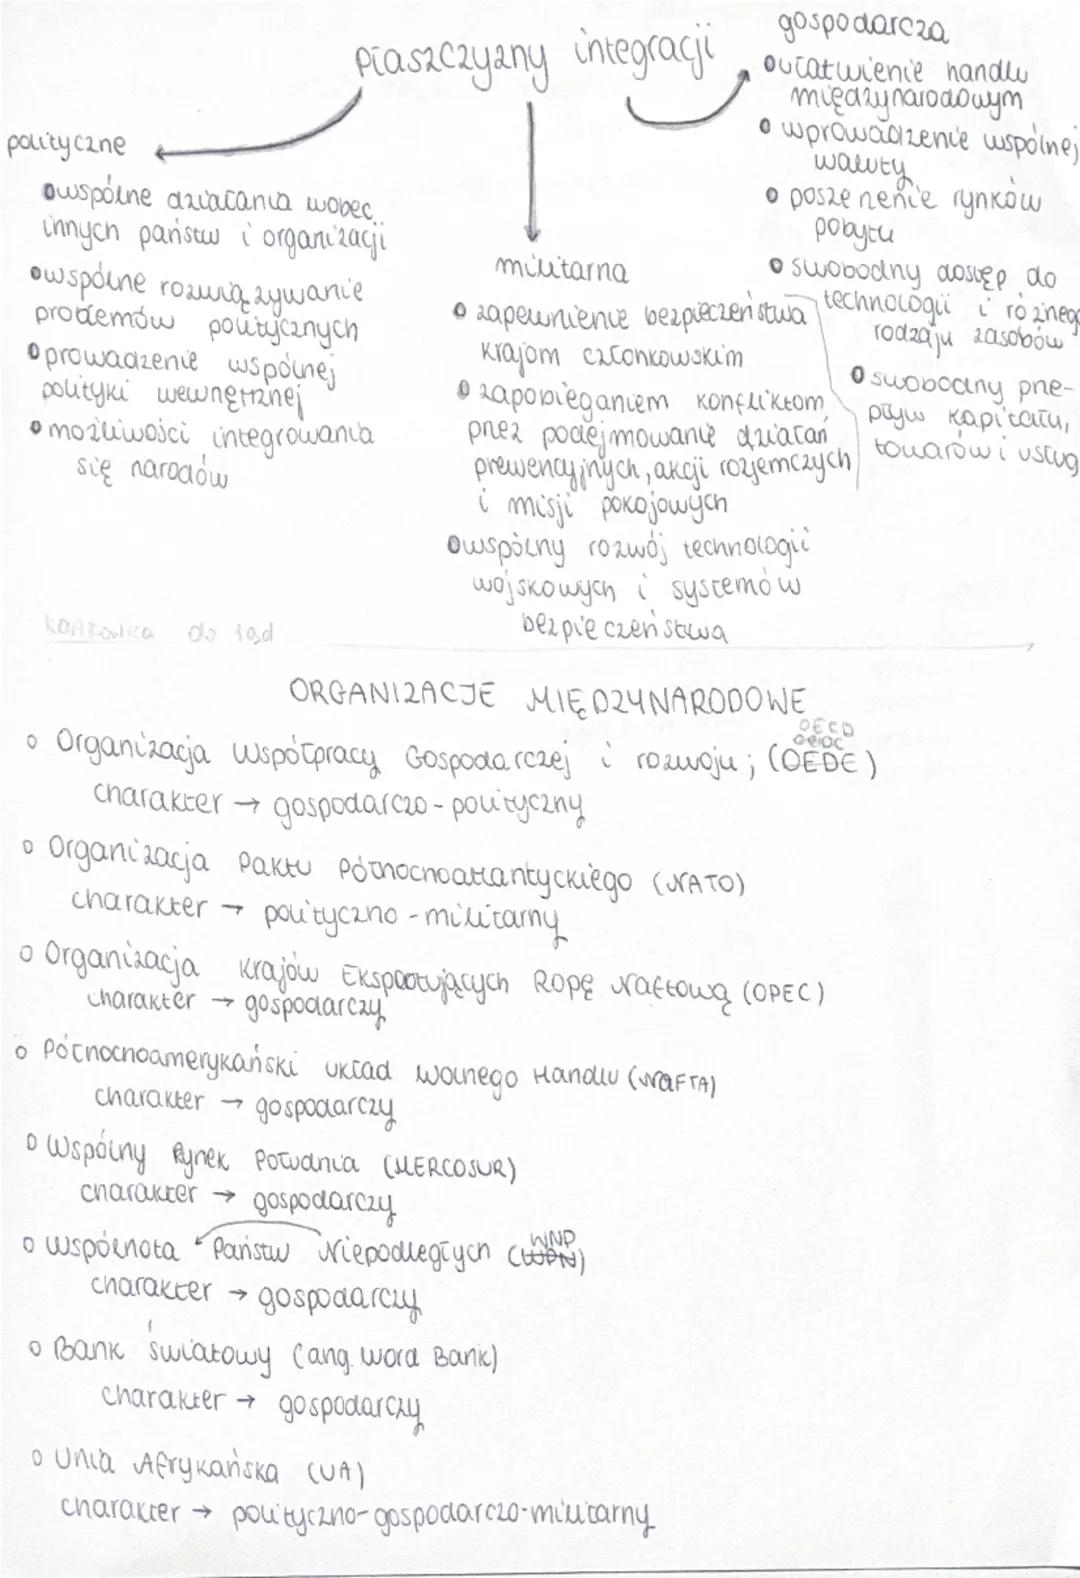 płaszczyzny integracji
polityczne
wspólne działania wobec
innych państw i organizacji
wspólne rozwiązywanie
problemów politycznych
prowadzenie wspólnej
polityki wewnętrznej
możliwości integrowania
się narodów
militarna
zapewnienie bezpieczeństwa
krajom członkowskim
zapobieganiem konfliktom,
przez podejmowanie działań
prewencyjnych, akcji rozjemczych
i misji pokojowych
wspólny rozwój technologii
wojskowych i systemów
bezpieczeństwa
gospodarcza
ułatwienie handlu
międzynarodowym
wprowadzenie wspólnej
waluty
rynków
pobytu
swobodny dostęp do
technologii i różnego
rodzaju zasobów
swobodny prze-
pływ kapitału,
towarów i usług
kartkówka do tąd
ORGANIZACJE MIĘDZYNARODOWE
OECD
Organizacja Współpracy Gospodarczej i rozwoju; (OEDE)
charakter → gospodarczo-polityczny
Organizacja Paktu Północnoatlantyckiego (NATO)
charakter → polityczno-militarny
Organizacja krajów Eksportujących Ropę Naftową (OPEC)
charakter → gospodarczy
Północnoamerykański układ wolnego Handlu (NAFTA)
charakter → gospodarczy
Wspólny Rynek Południa (MERCOSUR)
charakter → gospodarczy
WNP
Wspólnota Państw Niepodległych (WPN)
charakter → gospodarczy
Bank światowy (ang. word Bank)
charakter → gospodarczy
Unia Afrykańska (UA)
charakter → polityczno-gospodarczo-militarny